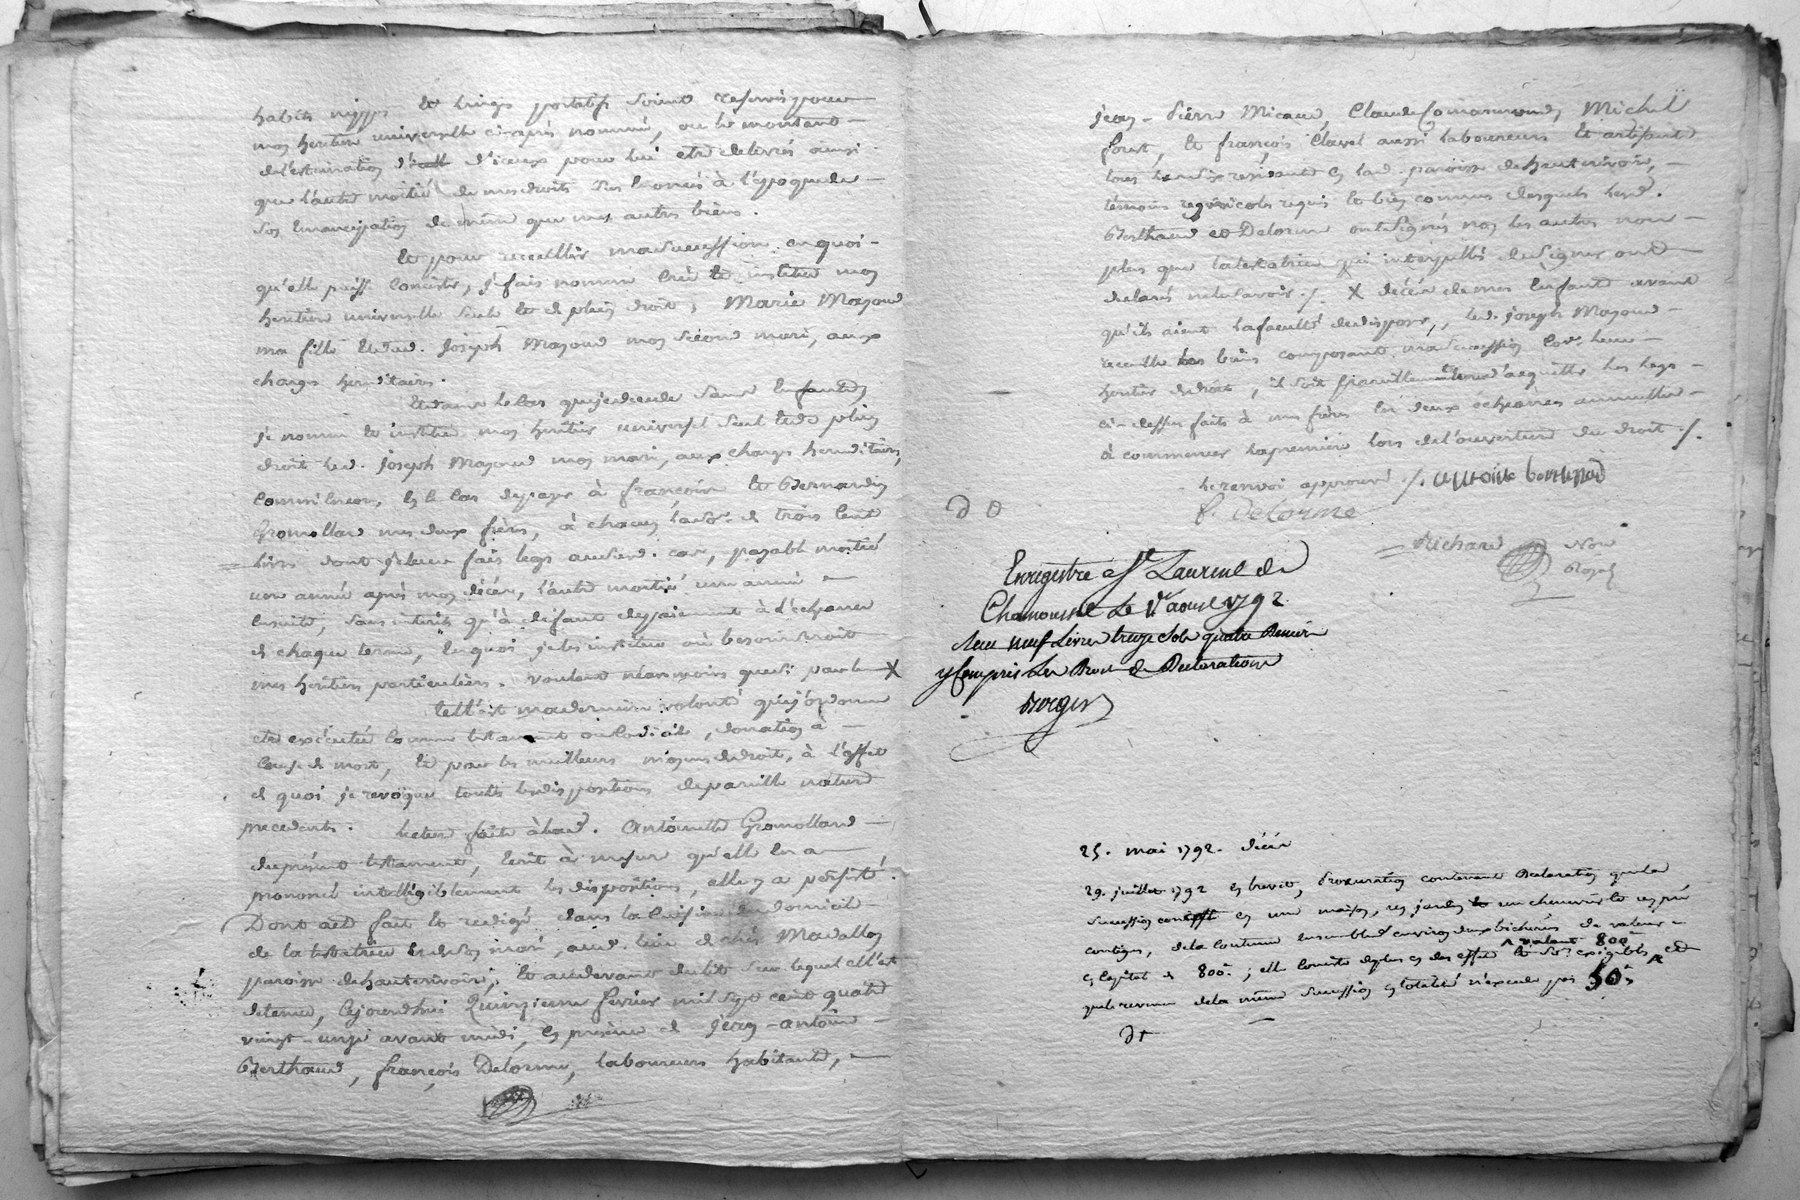 habits nippes et linges portatifs soient reservés pour
mon heritiere universelle ci-après nommée, ou le montant
de l'estimation d'iceux pour lui etre delivrés ainsi
que l'autre moitié de mes droits sus leonnés à l'époque de
son emancipation de même que mes autres biens.
Et pour recueillir ma succession en quoi-
qu'elle puisse consister, j'ai fais nommé créé et institué mon
heritiere universelle seule et de plein droit, Marie Mazoud
ma fille et dud. Joseph Mazoud mon second mari, aux
charges hereditaires.
Et dans le cas que je decede sans enfants
je nomme et institue mon heritier universel seul et de plein
droit led. Joseph Mazoud mon mari, aux charges hereditaires,
comm'encore, en ce cas de payer à françois et Bernardin
Gromolland mes deux frères, à chacun la de trois cent
livres dont je leur fais legs aud. cas, payable moitié
une année après mon décès, l'autre moitié une année
ensuite, sans interets qu'à defaut de paiement à l'echeance
de chaque terme, en quoi je les institue où besoin seroit
mes heritiers particuliers. voulant néanmoins que si par le X
telle est ma derniere volonté que j'ordonne
etre exécutée comme testament ou codicile, donation à
cause de mort, et par les meilleurs moyens de droit, à l'effet
de quoi je revoque toutes les dispositions de pareille nature
precedentes. lecture faite à lad. Antoinette Gromolland
du présent testament, ecrit à mesure qu'elle en a
prononcé intelligiblement les dispositions, elle y a persisté.
Dont acte fait et redigé dans la cuisine du domicile
de la testatrice et de son mari, aud. lieu de chés Mavallon
paroisse de hauterivoire, et au devant du lit sur lequel elle est
detenue, cejourdhui Quinzieme fevrier mil sept cent quatre
vingt-onze avant midi, en presence de jean-antoine
Berthaud, françois Delorme, laboureurs habitants,
jean-Pierre Micaud, Claude Comarmond, Michel
font, et françois Clavel aussi laboureurs et artisants
tous residents en lad. paroisse de hauterivoire,
témoins requis et bien connus desquels lesd.
Berthaud et Delorme ont signés non les autres non
plus que la testatrice qui interpellés de signer ont
declarés ne le savoir ./. X décès de mes enfants avant
qu'ils aient la faculté de disposer, led. joseph Mazoud
recueille les biens composant ma succession comme leur
heritier de droit, il soit pareillement tenu d'acquitter les legs
ci-dessus faits à mes frères en deux échéances annuelles
à commencer la premiere lors de l'ouverture du droit ./.
le renvoi approuvé ./. antoine berthaud
f. Delorme
Richard Nore
Royal
Enregistré a St Laurent de
Chamousset Le 1er aoust 1792
Reçu neuf Livres treize sols quatre Deniers
y Compris Les Droits de Declarations
Borges
25. mai 1792. décès
29. juillet 1792 en brevet, Procuration contenant Declaration que la
succession consiste en une maison, un jardin et un cheneviere et un pré
contigus, de la contenue ensemble d'environ deux bicherées de valeur
en capital de 800#; elle consiste de plus en des effets et exigibles valant 800# et
que le revenu de la même succession en totalité n'excede pas 50#